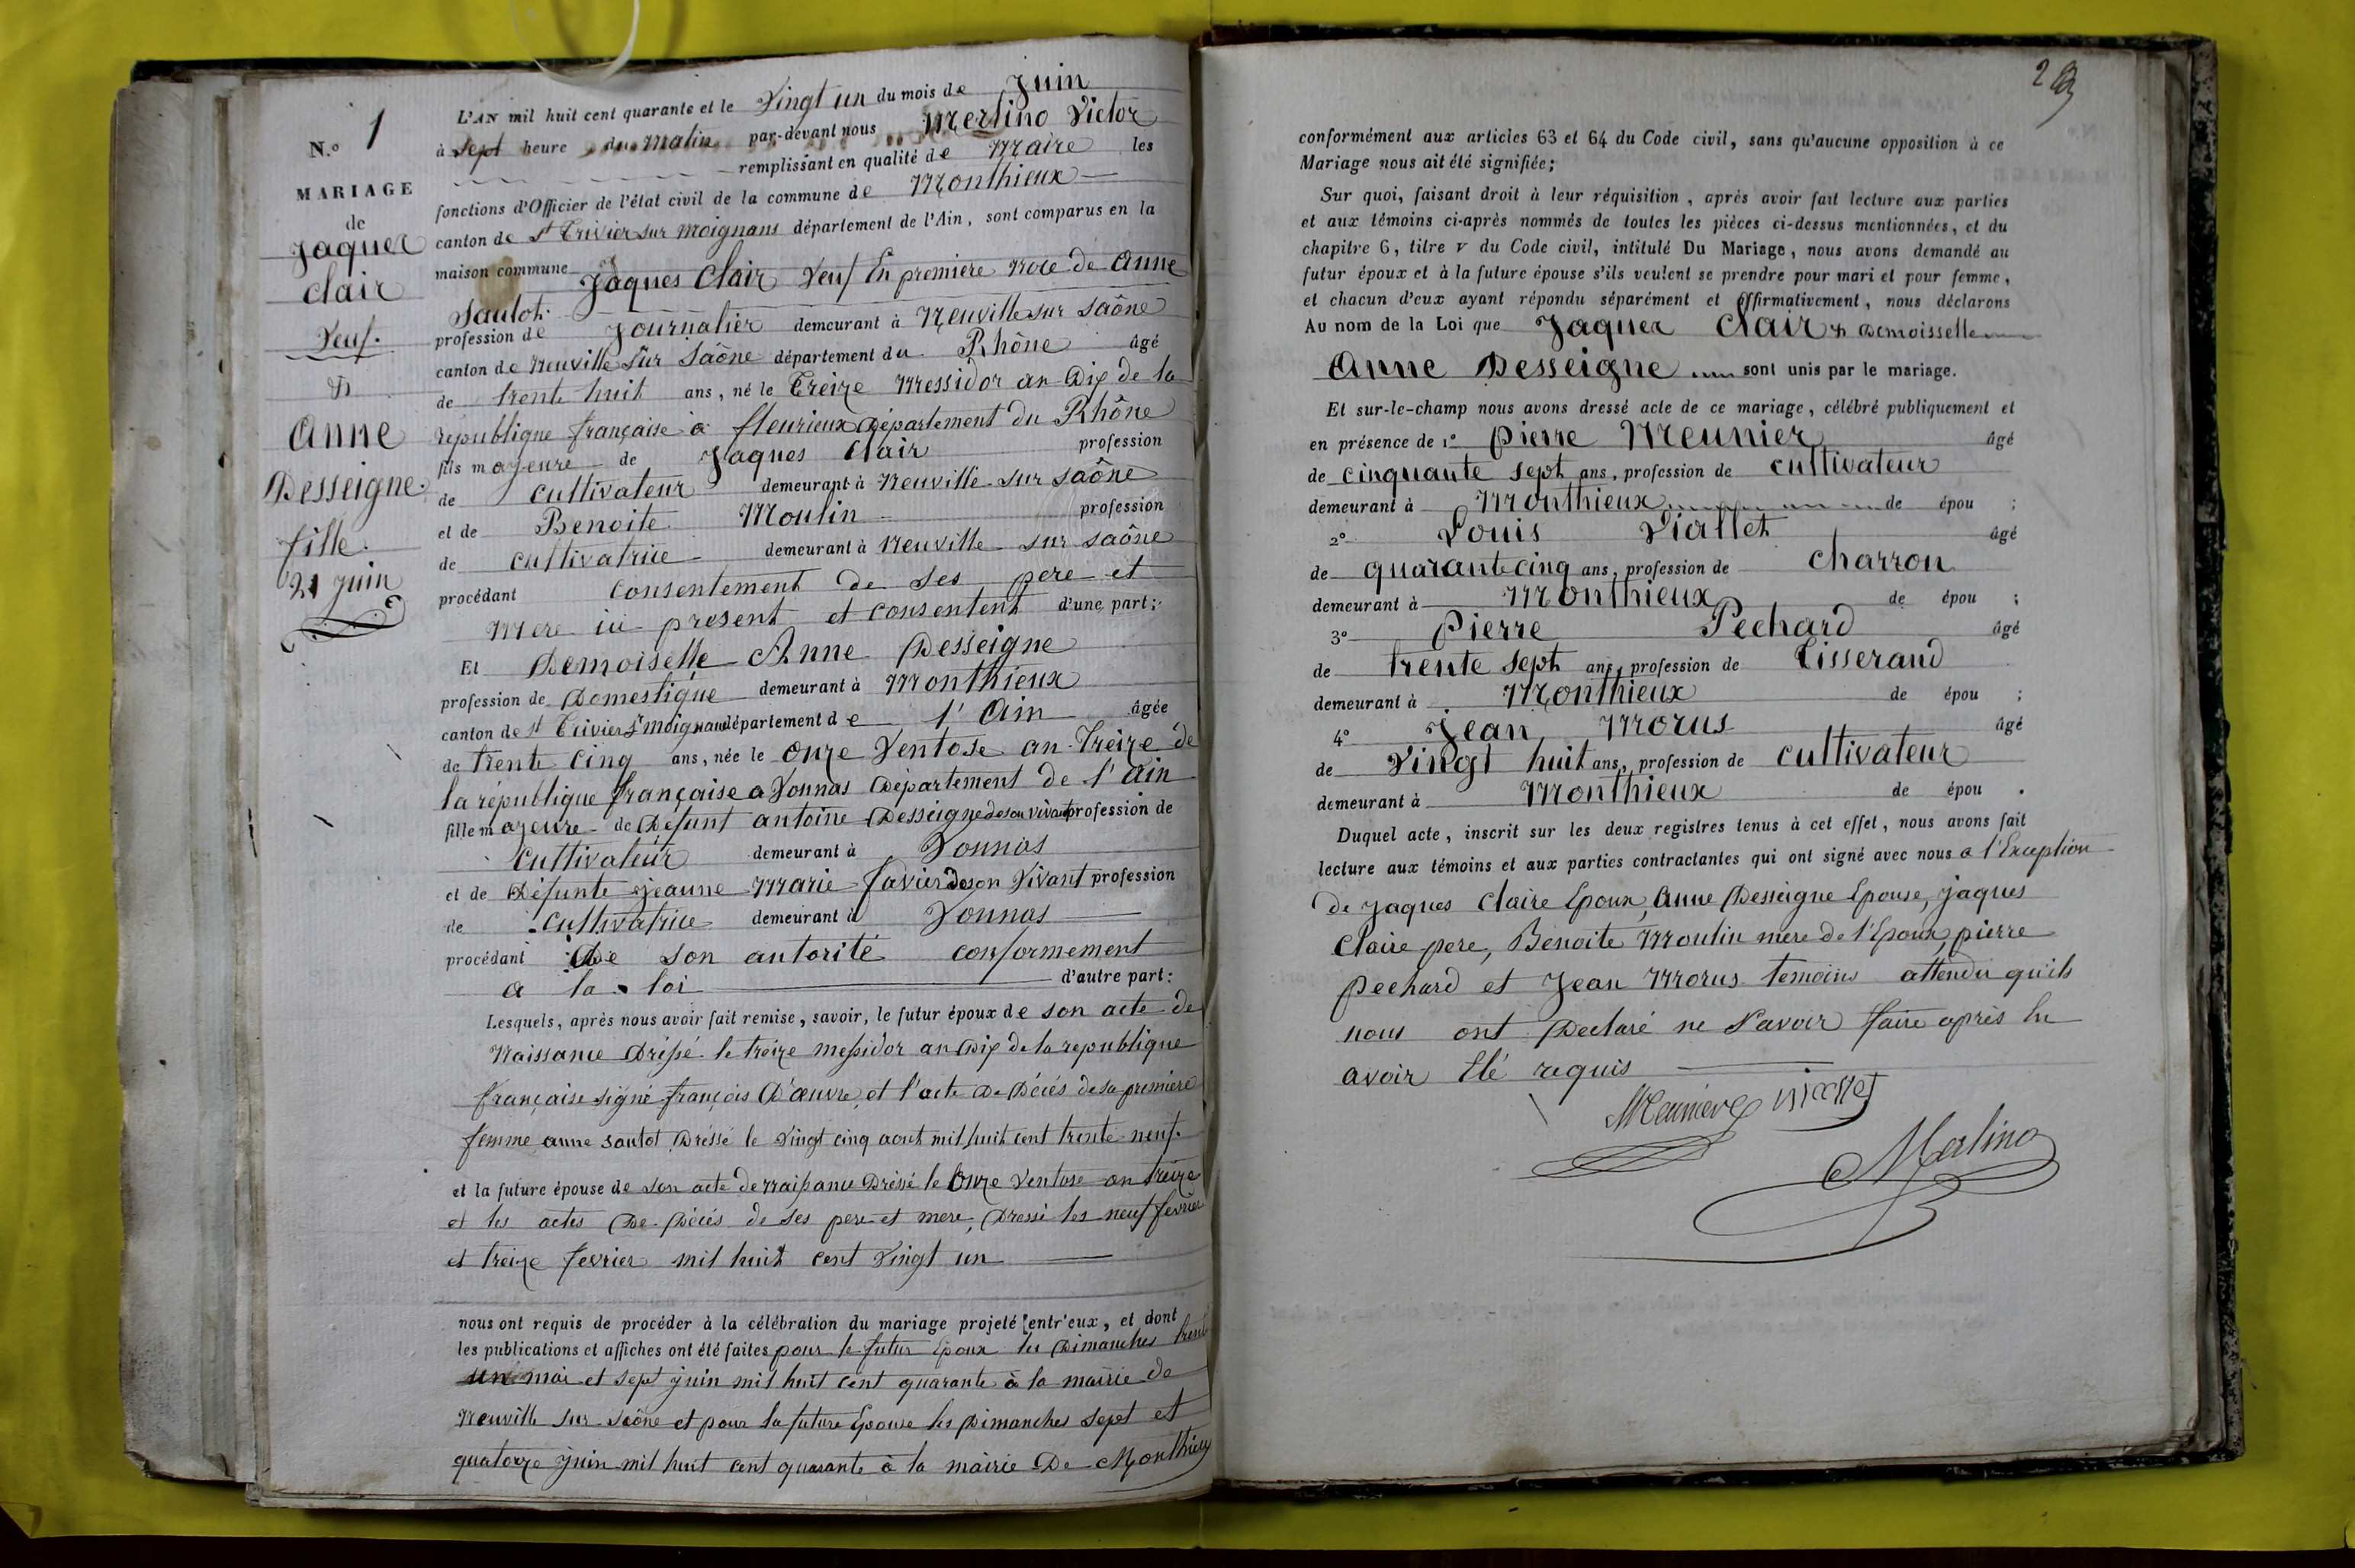 N.º 1
MARIAGE
de
Jaques
Clair
Veuf.
&
Anne
Desseigne.
fille.
21 juin
L'AN mil huit cent quarante et le Vingt un du mois de Juin
à sept heure du Matin par-devant nous Merlino Victor
remplissant en qualité de Maire les
fonctions d'Officier de l'état civil de la commune de Monthieux
canton de St Trivier sur moignans département de l'Ain, sont comparus en la
maison commune Jaques Clair Veuf En premiere Noce de Anne
Saulot.
profession de Journalier demeurant à Neuville sur Saône
canton de Neuville sur Saône département du Rhône âgé
de trente huit ans, né le Treize Messidor an Dix de la
république française à fleurieux Département du Rhône
fils majeure de Jaques Clair profession
de cultivateur demeurant à Neuville sur saône
et de Benoite Moulin profession
de cultivatrice demeurant à Neuville sur saône
procédant consentement de ses pere et
Mere ici present et consentent d'une part;
Et Demoiselle Anne Desseigne
profession de Domestique demeurant à Monthieux
canton de st Trivier s moignans département de l'Ain âgée
de trente cinq ans, née le onze Ventose an Treize de
la république française a Vonnas Département de l'Ain
fille majeure de Défunt antoine Desseigne de son vivant profession de
Cultivateur demeurant à Vonnas
et de Défunte Jeanne Marie favier de son Vivant profession
de Cultivatrice demeurant à Vonnas
procédant De son autorité conformement
a la loi d'autre part:
Lesquels, après nous avoir fait remise, savoir, le futur époux de son acte de
Naissance Dréssé le treize messidor an Dix de la republique
française signé françois D'œuvre, et l'acte De Décés de sa premiere
femme anne saulot Dréssé le Vingt cinq aout mil huit cent trente neuf.
et la future épouse de son acte de naissance Dréssé le onze Ventose an treize
et les actes De Décés de ses pere et mere, Dressé les neuf fevrier
et treize fevrier mil huit cent Vingt un
nous ont requis de procéder à la célébration du mariage projeté entr'eux, et dont
les publications et affiches ont été faites pour le futur Epoux les Dimanches trente
un mai et sept juin mil huit cent quarante à la mairie de
Neuville sur Saône et pour la future Epouse les Dimanches sept et
quatorze juin mil huit cent quarante à la mairie De Monthieux
conformément aux articles 63 et 64 du Code civil, sans qu'aucune opposition à ce
Mariage nous ait été signifiée;
Sur quoi, faisant droit à leur réquisition, après avoir fait lecture aux parties
et aux témoins ci-après nommés de toutes les pièces ci-dessus mentionnées, et du
chapitre 6, titre v du Code civil, intitulé Du Mariage, nous avons demandé au
futur époux et à la future épouse s'ils veulent se prendre pour mari et pour femme,
et chacun d'eux ayant répondu séparément et affirmativement, nous déclarons
Au nom de la Loi que Jaques Clair & Demoisselle
Anne Desseigne sont unis par le mariage.
Et sur-le-champ nous avons dressé acte de ce mariage, célébré publiquement et
en présence de 1º Pierre Meunier âgé
de cinquante sept ans, profession de cultivateur
demeurant à Monthieux de épou ;
2º Louis Viallet âgé
de quarante cinq ans, profession de Charron
demeurant à Monthieux de épou ;
3º Pierre Pechard âgé
de trente sept ans, profession de Tisserand
demeurant à Monthieux de épou ;
4º Jean Morus âgé
de Vingt huit ans, profession de cultivateur
demeurant à Monthieux de épou .
Duquel acte, inscrit sur les deux registres tenus à cet effet, nous avons fait
lecture aux témoins et aux parties contractantes qui ont signé avec nous a l'Exception
De Jaques Claire Epoux, Anne Desseigne Epouse, jaques
Claire pere, Benoite Moulin mere de l'Epoux, pierre
Pechard et Jean Morus temoins attendu qu'ils
nous ont Declaré ne Savoir faire après en
avoir Eté requis
Meunier Viallet
Merlino